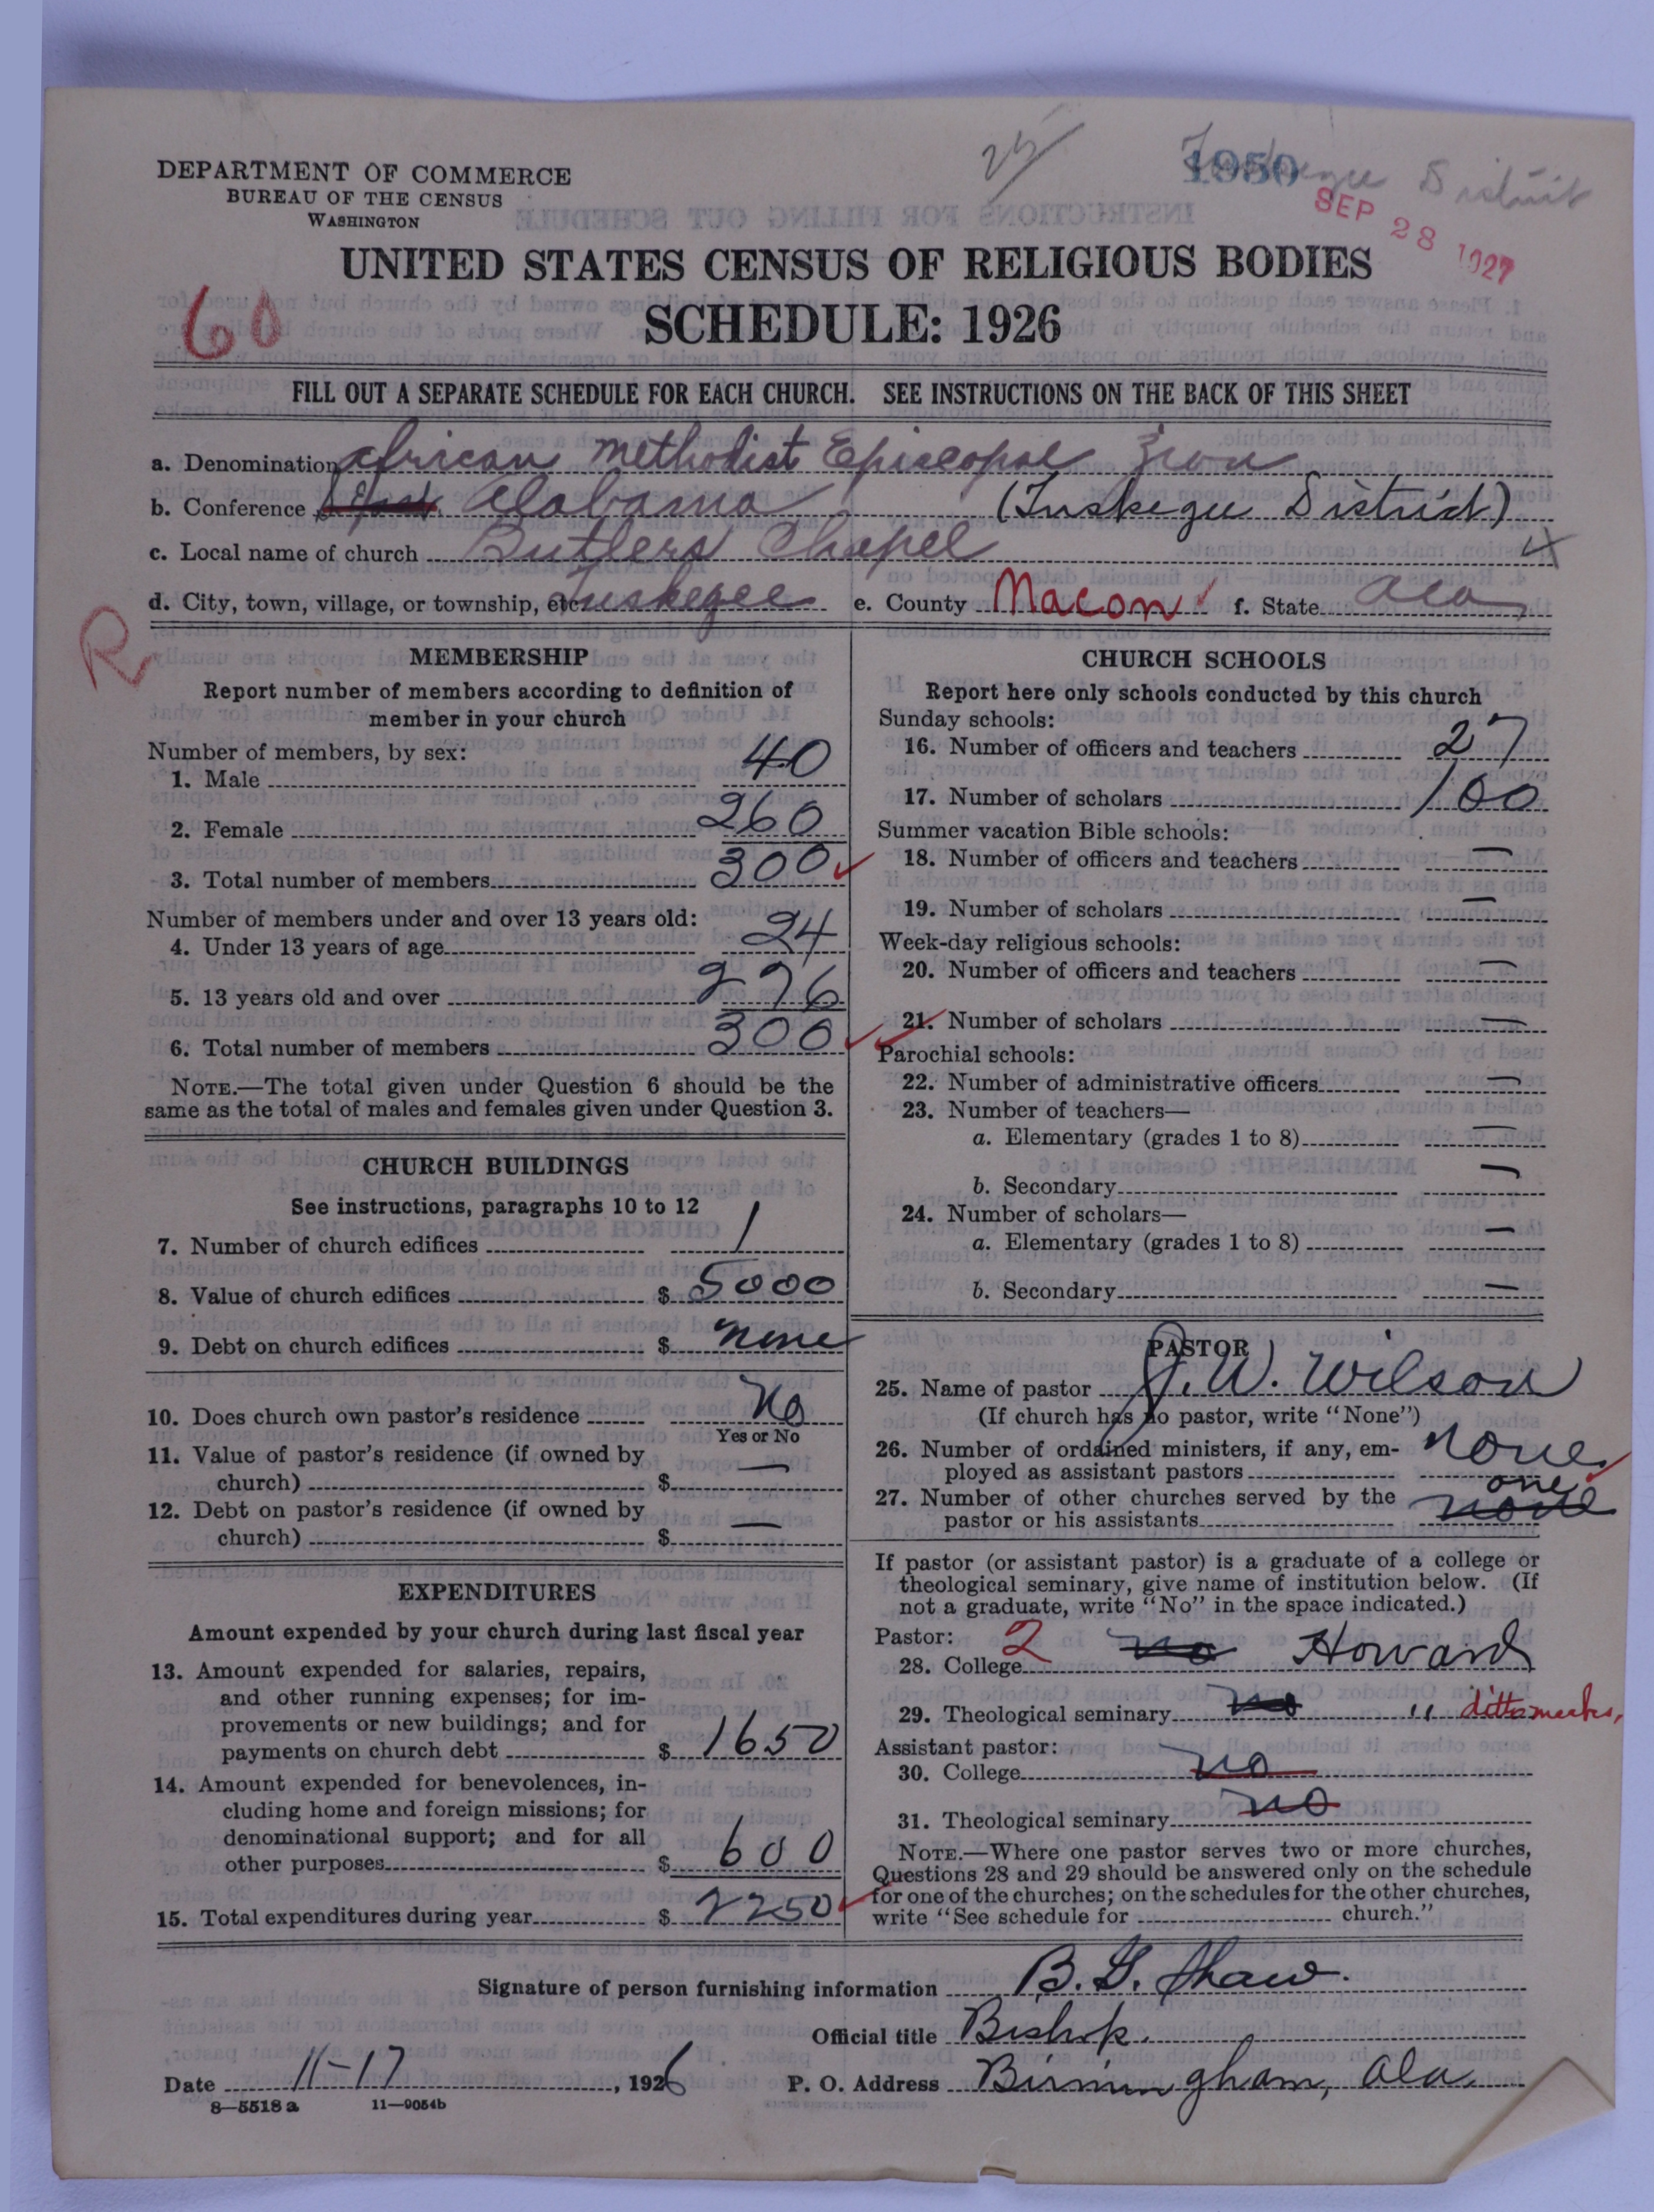 25
1950
Tuskegee District
SEP 28 1927
DEPARTMENT OF COMMERCE
BUREAU OF THE CENSUS
WASHINGTON
UNITED STATES CENSUS OF RELIGIOUS BODIES
SCHEDULE: 1926
60
FILL OUT A SEPARATE SCHEDULE FOR EACH CHURCH. SEE INSTRUCTIONS ON THE BACK OF THIS SHEET
a. Denomination African Methodist Episcopal Zion
b. Conference Alabama (Tuskegee District)
c. Local name of church Butlers Chapel
d. City, town, village, or township, etc. Tuskegee e. County Macon f. State Ala
R
MEMBERSHIP
Report number of members according to definition of
member in your church
Number of members, by sex:
1. Male 40
2. Female 260
3. Total number of members 300
Number of members under and over 13 years old:
4. Under 13 years of age 24
5. 13 years old and over 276
6. Total number of members 300
NOTE.—The total given under Question 6 should be the
same as the total of males and females given under Question 3.
CHURCH BUILDINGS
See instructions, paragraphs 10 to 12
7. Number of church edifices 1
8. Value of church edifices $ 5000
9. Debt on church edifices $ none
10. Does church own pastor's residence No
Yes or No
11. Value of pastor's residence (if owned by
church) $ —
12. Debt on pastor's residence (if owned by
church) $ —
EXPENDITURES
Amount expended by your church during last fiscal year
13. Amount expended for salaries, repairs,
and other running expenses; for im-
provements or new buildings; and for
payments on church debt $ 1650
14. Amount expended for benevolences, in-
cluding home and foreign missions; for
denominational support; and for all
other purposes $ 600
15. Total expenditures during year $ 2250
CHURCH SCHOOLS
Report here only schools conducted by this church
Sunday schools:
16. Number of officers and teachers 27
17. Number of scholars 100
Summer vacation Bible schools:
18. Number of officers and teachers —
19. Number of scholars —
Week-day religious schools:
20. Number of officers and teachers —
21. Number of scholars —
Parochial schools:
22. Number of administrative officers —
23. Number of teachers—
a. Elementary (grades 1 to 8) —
b. Secondary —
24. Number of scholars—
a. Elementary (grades 1 to 8) —
b. Secondary —
PASTOR
25. Name of pastor J. W. Wilson
(If church has no pastor, write "None")
26. Number of ordained ministers, if any, em-
ployed as assistant pastors none
27. Number of other churches served by the
pastor or his assistants none one
If pastor (or assistant pastor) is a graduate of a college or
theological seminary, give name of institution below. (If
not a graduate, write "No" in the space indicated.)
Pastor:
28. College 2 no Howard
29. Theological seminary no " ditto marks,
Assistant pastor:
30. College no
31. Theological seminary no
NOTE.—Where one pastor serves two or more churches,
Questions 28 and 29 should be answered only on the schedule
for one of the churches; on the schedules for the other churches,
write "See schedule for church."
Signature of person furnishing information B. G. Shaw.
Official title Bishop.
Date 11-17, 1926 P. O. Address Birmingham, Ala.
8—5518a 11—9054b